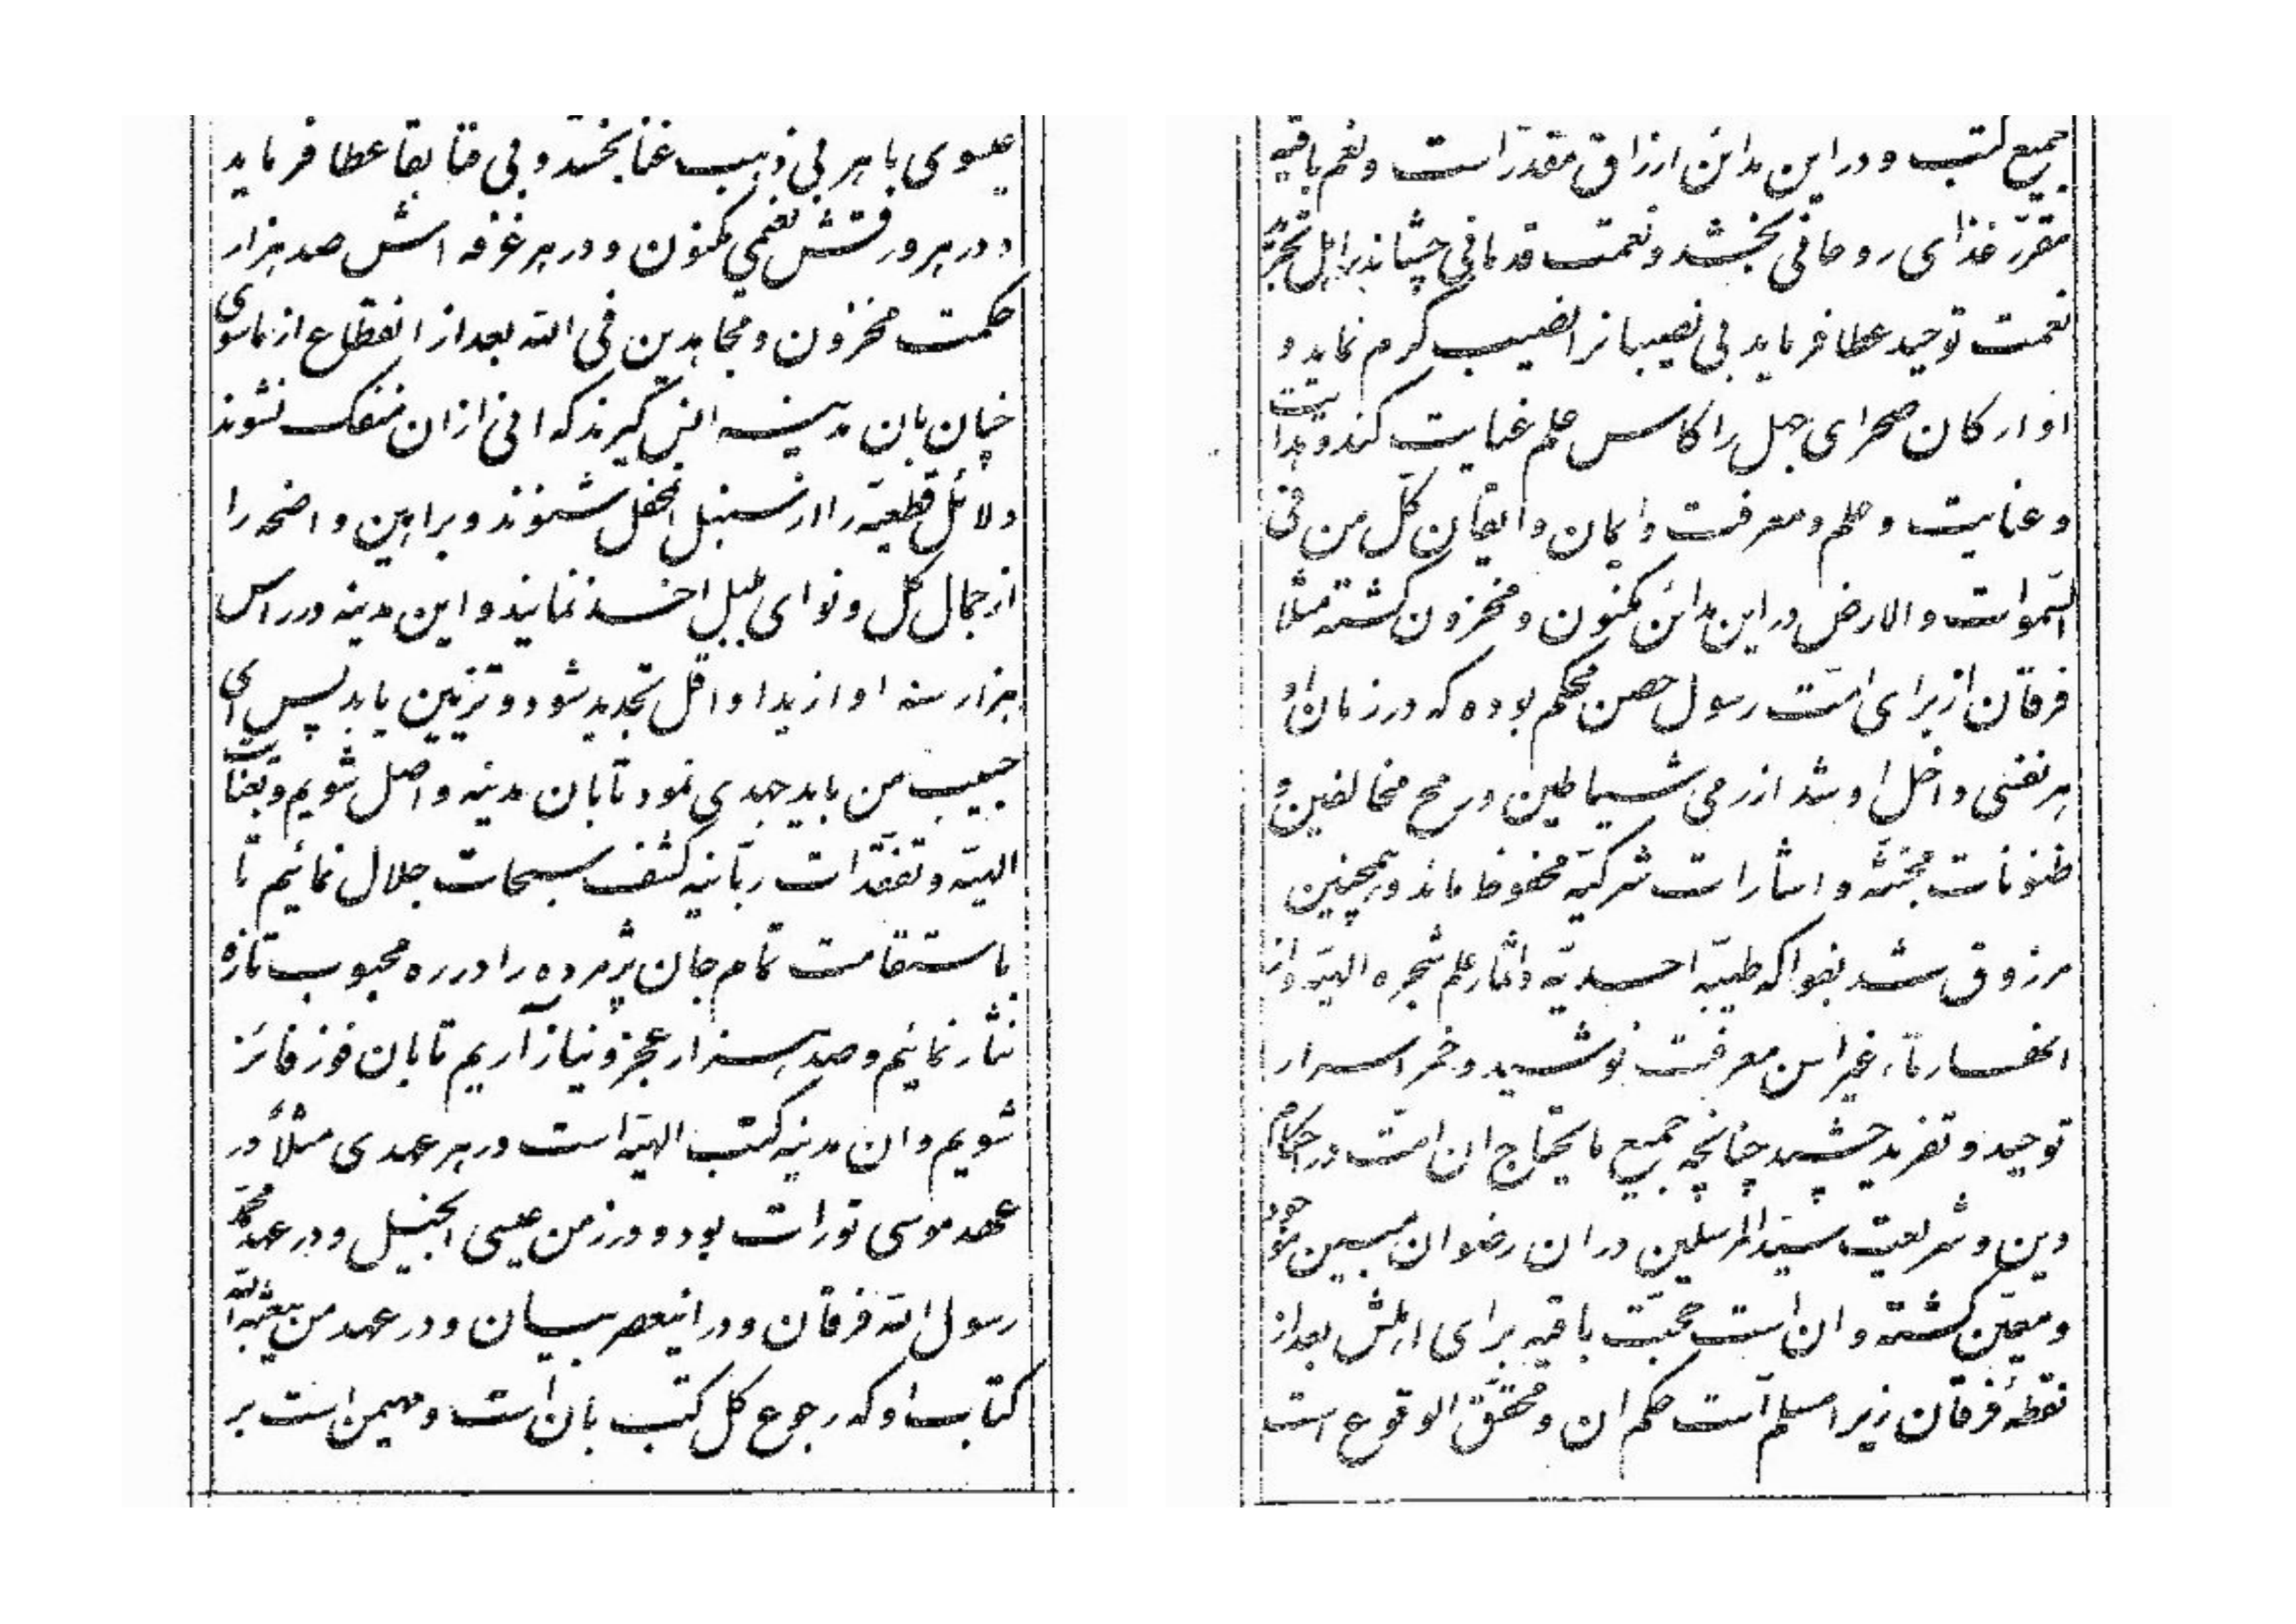 عیسوی باهر بی ذهب غنا بخشد و بی فنا بقا عطا فرماید
و در هر ورقش نعیمی مکنون و در هر غرفه اش صد هزار
حکمت مخزون و مجاهدین فی الله بعد از انقطاع از ماسوی
چنان بان مدینه انس گیرند که انی از ان منفک نشوند
دلائل قطعیّه را از سنبل انمحفل شنوند و براهین واضحه را
از جمال گل و نوای بلبل اخذ نمایند و این مدینه در راس
هزار سنه او ازید او اقلّ تجدید شود و تزیین یابد پس ای
حبیب من باید جهدی نمود تا بان مدینه واصل شویم و بعنایت
الهیّه و تفقّدات ربّانیه کشف سبحات جلال نمائیم تا
باستقامت تمام جان پژمرده را در ره محبوب تازه
نثار نمائیم و صد هزار عجز و نیاز آریم تا بان فوز فائز
شویم و ان مدینه کتب الهیّه است در هر عهدی مثلاً در
عهد موسی تورات بود و در زمن عیسی انجیل و در عهد محمّد
رسول الله فرقان و در اینعصر بیان و در عهد من یبعثه الله
کتاب او که رجوع کل کتب بان است و مهیمن است بر
جمیع کتب و در این مدائن ارزاق مقدّر است و نعم باقیه
مقرّر غذای روحانی بخشد و نعمت قدمانی چشاند بر اهل تجرّد
نعمت توحید عطا فرماید بی نصیبانرا نصیب کرم نماید و
اوارکان صحرای جهل را کاس علم عنایت کند و هدایت
و عنایت و علم و معرفت و ایمان و ایقان کلّ من فی
السّموات و الارض در این مدائن مکنون و مخزون گشته مثلا
فرقان از برای امّت رسول حصن محکم بوده که در زمان او
هر نفسی داخل او شد از رمی شیاطین و رمح مخالفین و
ظنونات مجتثّه و اشارات شرکیّه محفوظ ماند و همچنین
مرزوق شد بفواکه طیّبه احدیّه و اثمار علم شجره الهیّه و از
انهار ماء غیر اسن معرفت نوشید و خمر اسرار
توحید و تفرید چشید چنانچه جمیع ما یحتاج ان امّت در احکام
دین و شریعت سیّد المرسلین در ان رضوان مبین موجود
و معیّن گشته و ان است حجّت باقیه برای اهلش بعد از
نقطهٔ فرقان زیرا مسلم است حکم ان و محقّق الوقوع است